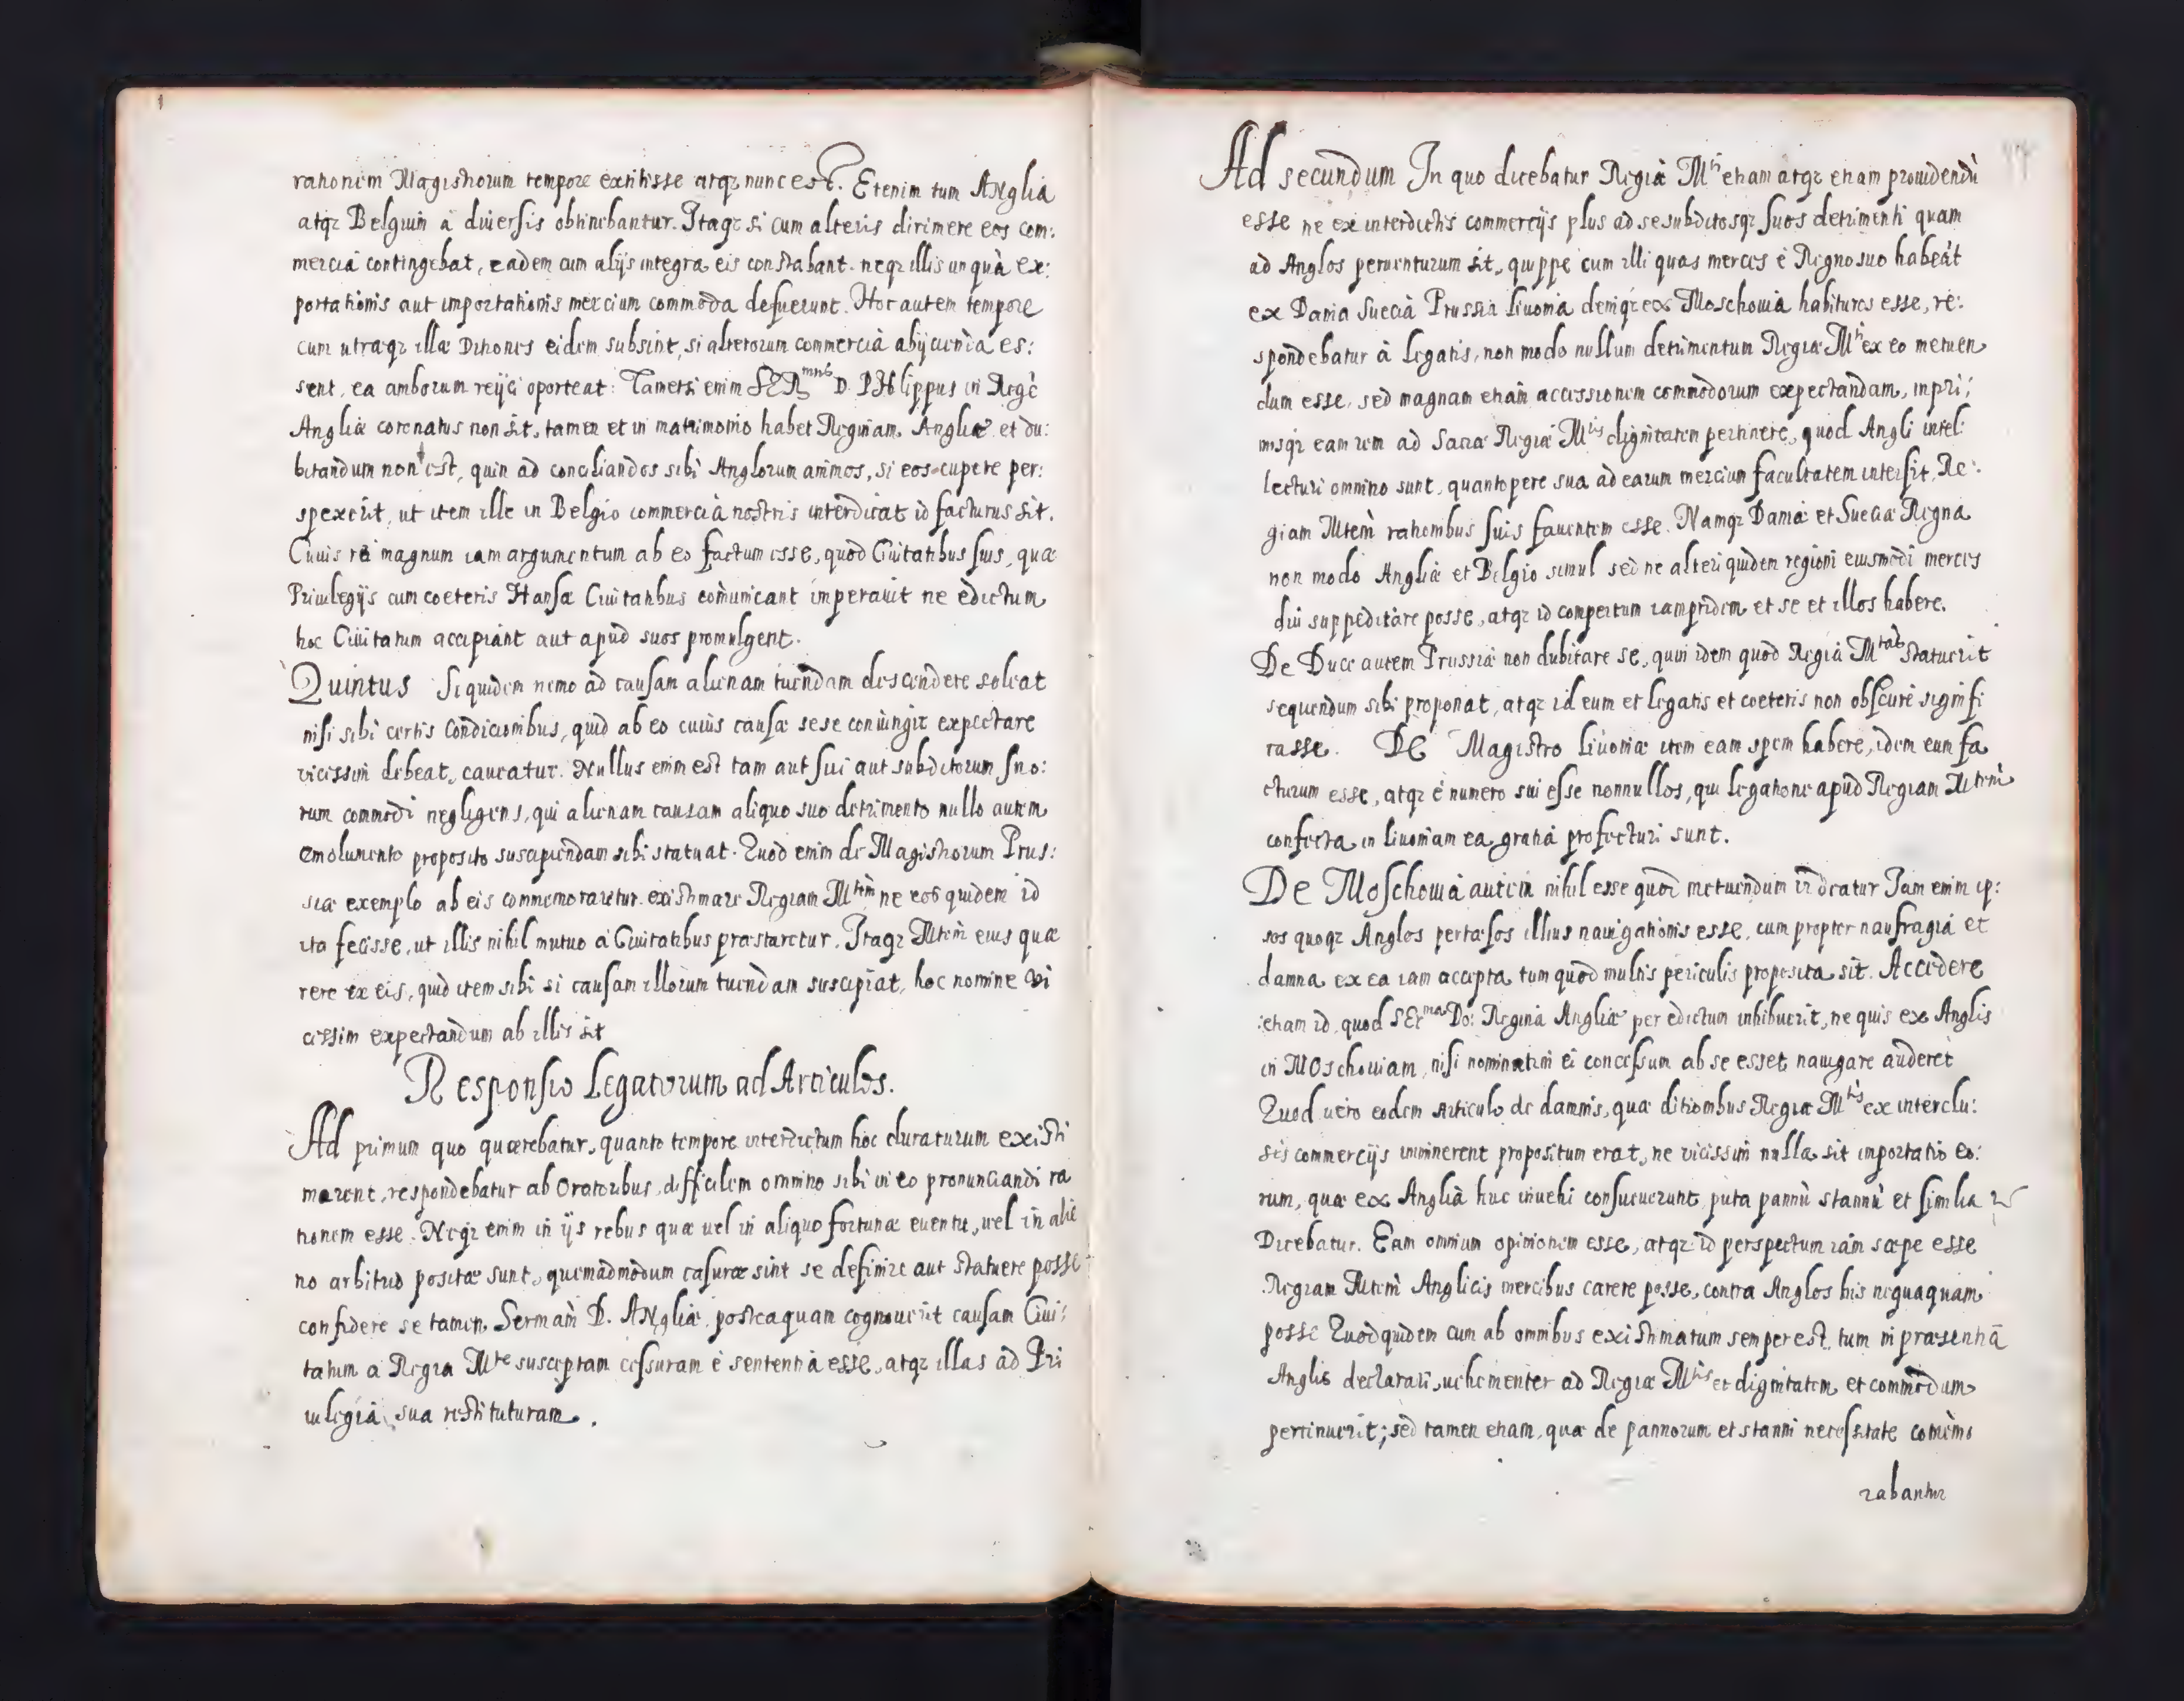 rationem Magistrorum tempore extitisse atqz nunc est. Etenim tum ANglia
atqz Belgium à diuersis obtinebantur. Itaqz si cum alteris dirimere eos com:
mercia contingebat, eadem cum alijs integra eis constabant. neqz illis unquà ex:
portationis aut importationis mercium commoda defuerunt. Hoc autem tempore
cum utraqz illa Ditiones eidem subsint, si alterorum commercia abijcienda es:
sent, ea amborum reijci oporteat: Tametsi enim SER^mus D. PHilippus in Regē
Angliæ coronatus non sit, tamen et in matrimonio habet Reginam Angliæ et du:
bitandum non est, quin ad conciliandos sibi Anglorum animos, si eos cupere per:
spexerit, ut item ille in Belgio commercia nostris interdicat id facturus sit.
Cuius rei magnum iam argumentum ab eo factum esse, quod Ciuitatibus suis, quæ
Priuilegijs cum coeteris Hansæ Ciuitatibus com̀unicant imperauit ne èdictum
hoc Ciuitatum accipiant aut apud suos promulgent.
Quintus Siquidem nemo ad causam alienam tuendam descendere soleat
nisi sibi certis Condicionibus, quid ab eo cuius causæ sese coniungit expectare
vicissim debeat, caueatur. Nullus enim est tam aut sui aut subditorum suo:
rum commodi negligens, qui alienam causam aliquo suo detrimento nullo autem
emolumento proposito suscipiendam sibi statuat. Quod enim de Magistrorum Prus:
siæ exemplo ab eis commemoraretur. existimare Regiam M^tem ne eos quidem id
ita fecisse, ut illis nihil mutuo a Ciuitatibus præstaretur. Itaqz Mtem̀ eius quæ
rere ex eis, quid item sibi si causam illorum tuendam suscipiat, hoc nomine vi
cissim expectandum ab illis sit
Responsio Legatorum ad Articulos.
Ad primum quo quærebatur, quanto tempore interdictum hoc duraturum existi
marent, respondebatur ab Oratoribus, difficilem omnino sibi in eo pronunciandi ra
tionem esse. Neqz enim in ijs rebus quæ uel in aliquo fortunæ euentu, uel in alie
no arbitrio positæ sunt, quemadmodum casuræ sint se definire aut statuere posse
confidere se tamen Sermam̀ D. ANgliæ, posteaquam cognouerit causam Ciui:
tatum a Regia M^te susceptam cessuram è sententia esse, atqz illas ad Pri
uilegia sua restituturam.
Ad secundum In quo dicebatur Regiæ M^ti etiam atqz etiam prouidendū
esse ne ex interdictis commercijs plus ad se subditosqz suos detrimenti quam
ad Anglos peruenturum sit, quippe cum illi quas merces è Regno suo habeāt
ex Dania Suecia Prussia Liuonia deniqz ex Moschouia habituros esse, re:
spondebatur à Legatis, non modo nullum detrimentum Regiæ M^ti ex eo metuen
dum esse, sed magnam etiam accessionem commodorum expectandam, inpri:
misqz eam rem ad Sacræ Regiæ M^tis dignitatem pertinere, quod Angli intel:
lecturi omnino sunt, quantopere sua ad earum mercium facultatem intersit, Re:
giam Mtem̀ rationibus suis fauentem esse. Namqz Daniæ et Sueciæ Regna
non modo Angliæ et Belgio simul sed ne alteri quidem regioni eiusmodi merces
diu suppeditare posse, atqz id compertum iampridem et se et illos habere.
De Duce autem Prussiæ non dubitare se, quin idem quod Regia M^tas statuerit
sequendum sibi proponat, atqz id eum et Legatis et coeteris non obscure signifi
casse. De Magistro Liuoniæ item eam spem habere, idem eum fa
cturum esse, atqz è numero sui esse nonnullos, qui legatione apud Regiam Mtem̀
confecta in Liuoniam ea gratia profecturi sunt.
De Moschouia autem nihil esse quod metuendum uideatur Iam enim ip:
sos quoqz Anglos pertæsos illius nauigationis esse, cum propter naufragia et
damna ex ea iam accepta tum quod multis periculis proposita sit. Accedere
etiam id, quod SEr^ma Do: Regina Angliæ per edictum inhibuerit, ne quis ex Anglis
in MOschouiam, nisi nominatim ei concessum ab se esset nauigare auderet
Quod uero eodem Articulo de damnis, quæ ditionibus Regiæ M^tis ex interclu:
sis commercijs imminerent propositum erat, ne vicissim nulla sit importatio eo:
rum, quæ ex Anglia huc inuehi consueuerunt, puta pannū stannū et similia
Dicebatur. Eam omnium opinionem esse, atqz id perspectum iam sæpe esse
Regiam Mtem̀ Anglicis mercibus carere posse, contra Anglos his nequaquam
posse Quod quidem cum ab omnibus existimatum semper est, tum in præsentia
Anglis declarari, uehementer ad Regiæ M^tis et dignitatem et commodum
pertinuerit; sed tamen etiam, quæ de pannorum et stanni necessitate com̀emo
rabantur